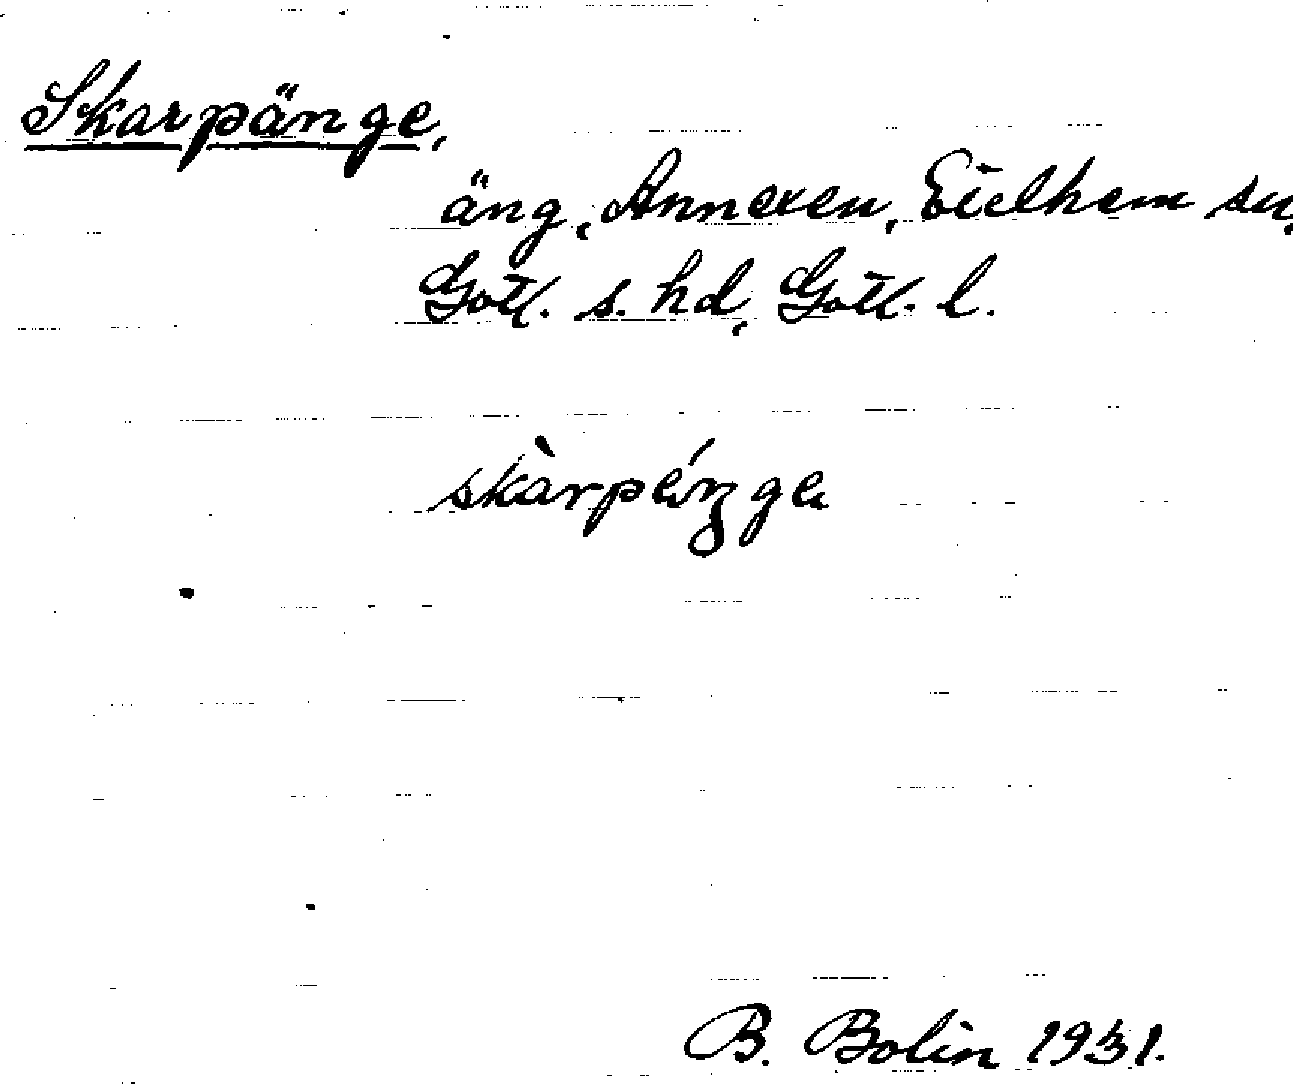 Skarpänge,
äng, Annexen, Etelhem sn,
Gotl. s. hd, Gotl. l.
skàrpéŋge
B. Bolin 1931.